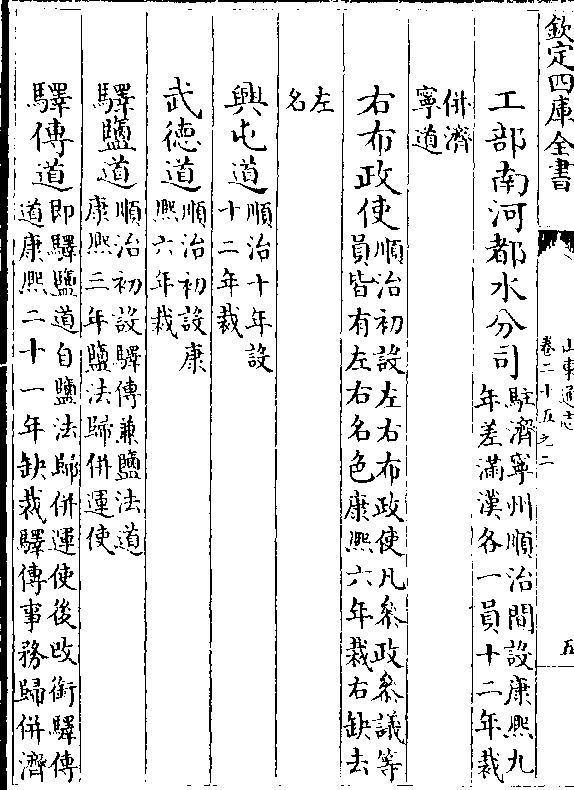 欽定四庫全書
山東通志
卷二十五之二
五
工部南河都水分司駐濟寧州順治間設康熙九
年差滿漢各一員十二年裁
併濟
寧道
右布政使順治初設左右布政使凡叅政叅議等
員皆有左右名色康熙六年裁右缺去
左
名
興屯道順治十年設
十二年裁
武德道順治初設康
熙六年裁
驛鹽道順治初設驛傳兼鹽法道
康熙三年鹽法歸併運使
驛傳道即驛鹽道自鹽法歸併運使後改銜驛傳
道康熙二十一年缺裁驛傳事務歸併濟